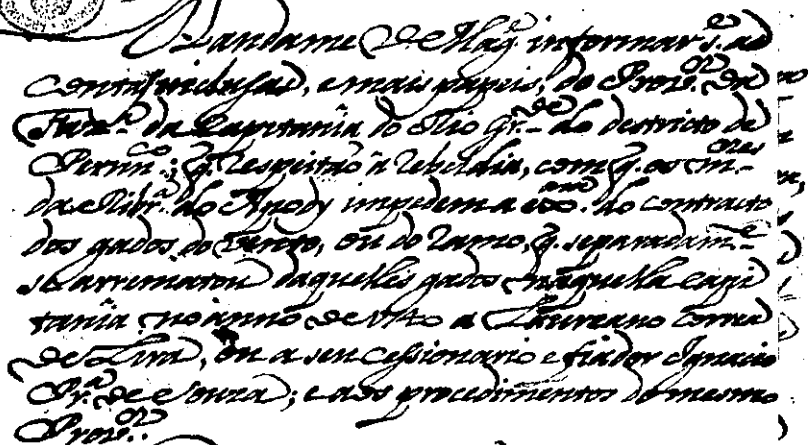 Mandame V. Mag.e informar s.e as
Contas inclusas, e mais papeis, do Prov.or da
Faz.da da Capitania do Rio Gr.de do destricto de
Pernn.co; q. respeitão â rebeldia, com q. os m.res
da Ribr.a do Apody impedem a do contracto
dos gados do Vento, ou do ramo, q. separadam.e
se arrematou daquelles gados naquella capi
tanîa no ânno de a Laureano Correa
de Lira, ou a seu cessionario e fiador Ignacio
Pr.a de Souza; e aos procedimentos do mesmo
Prov.or.